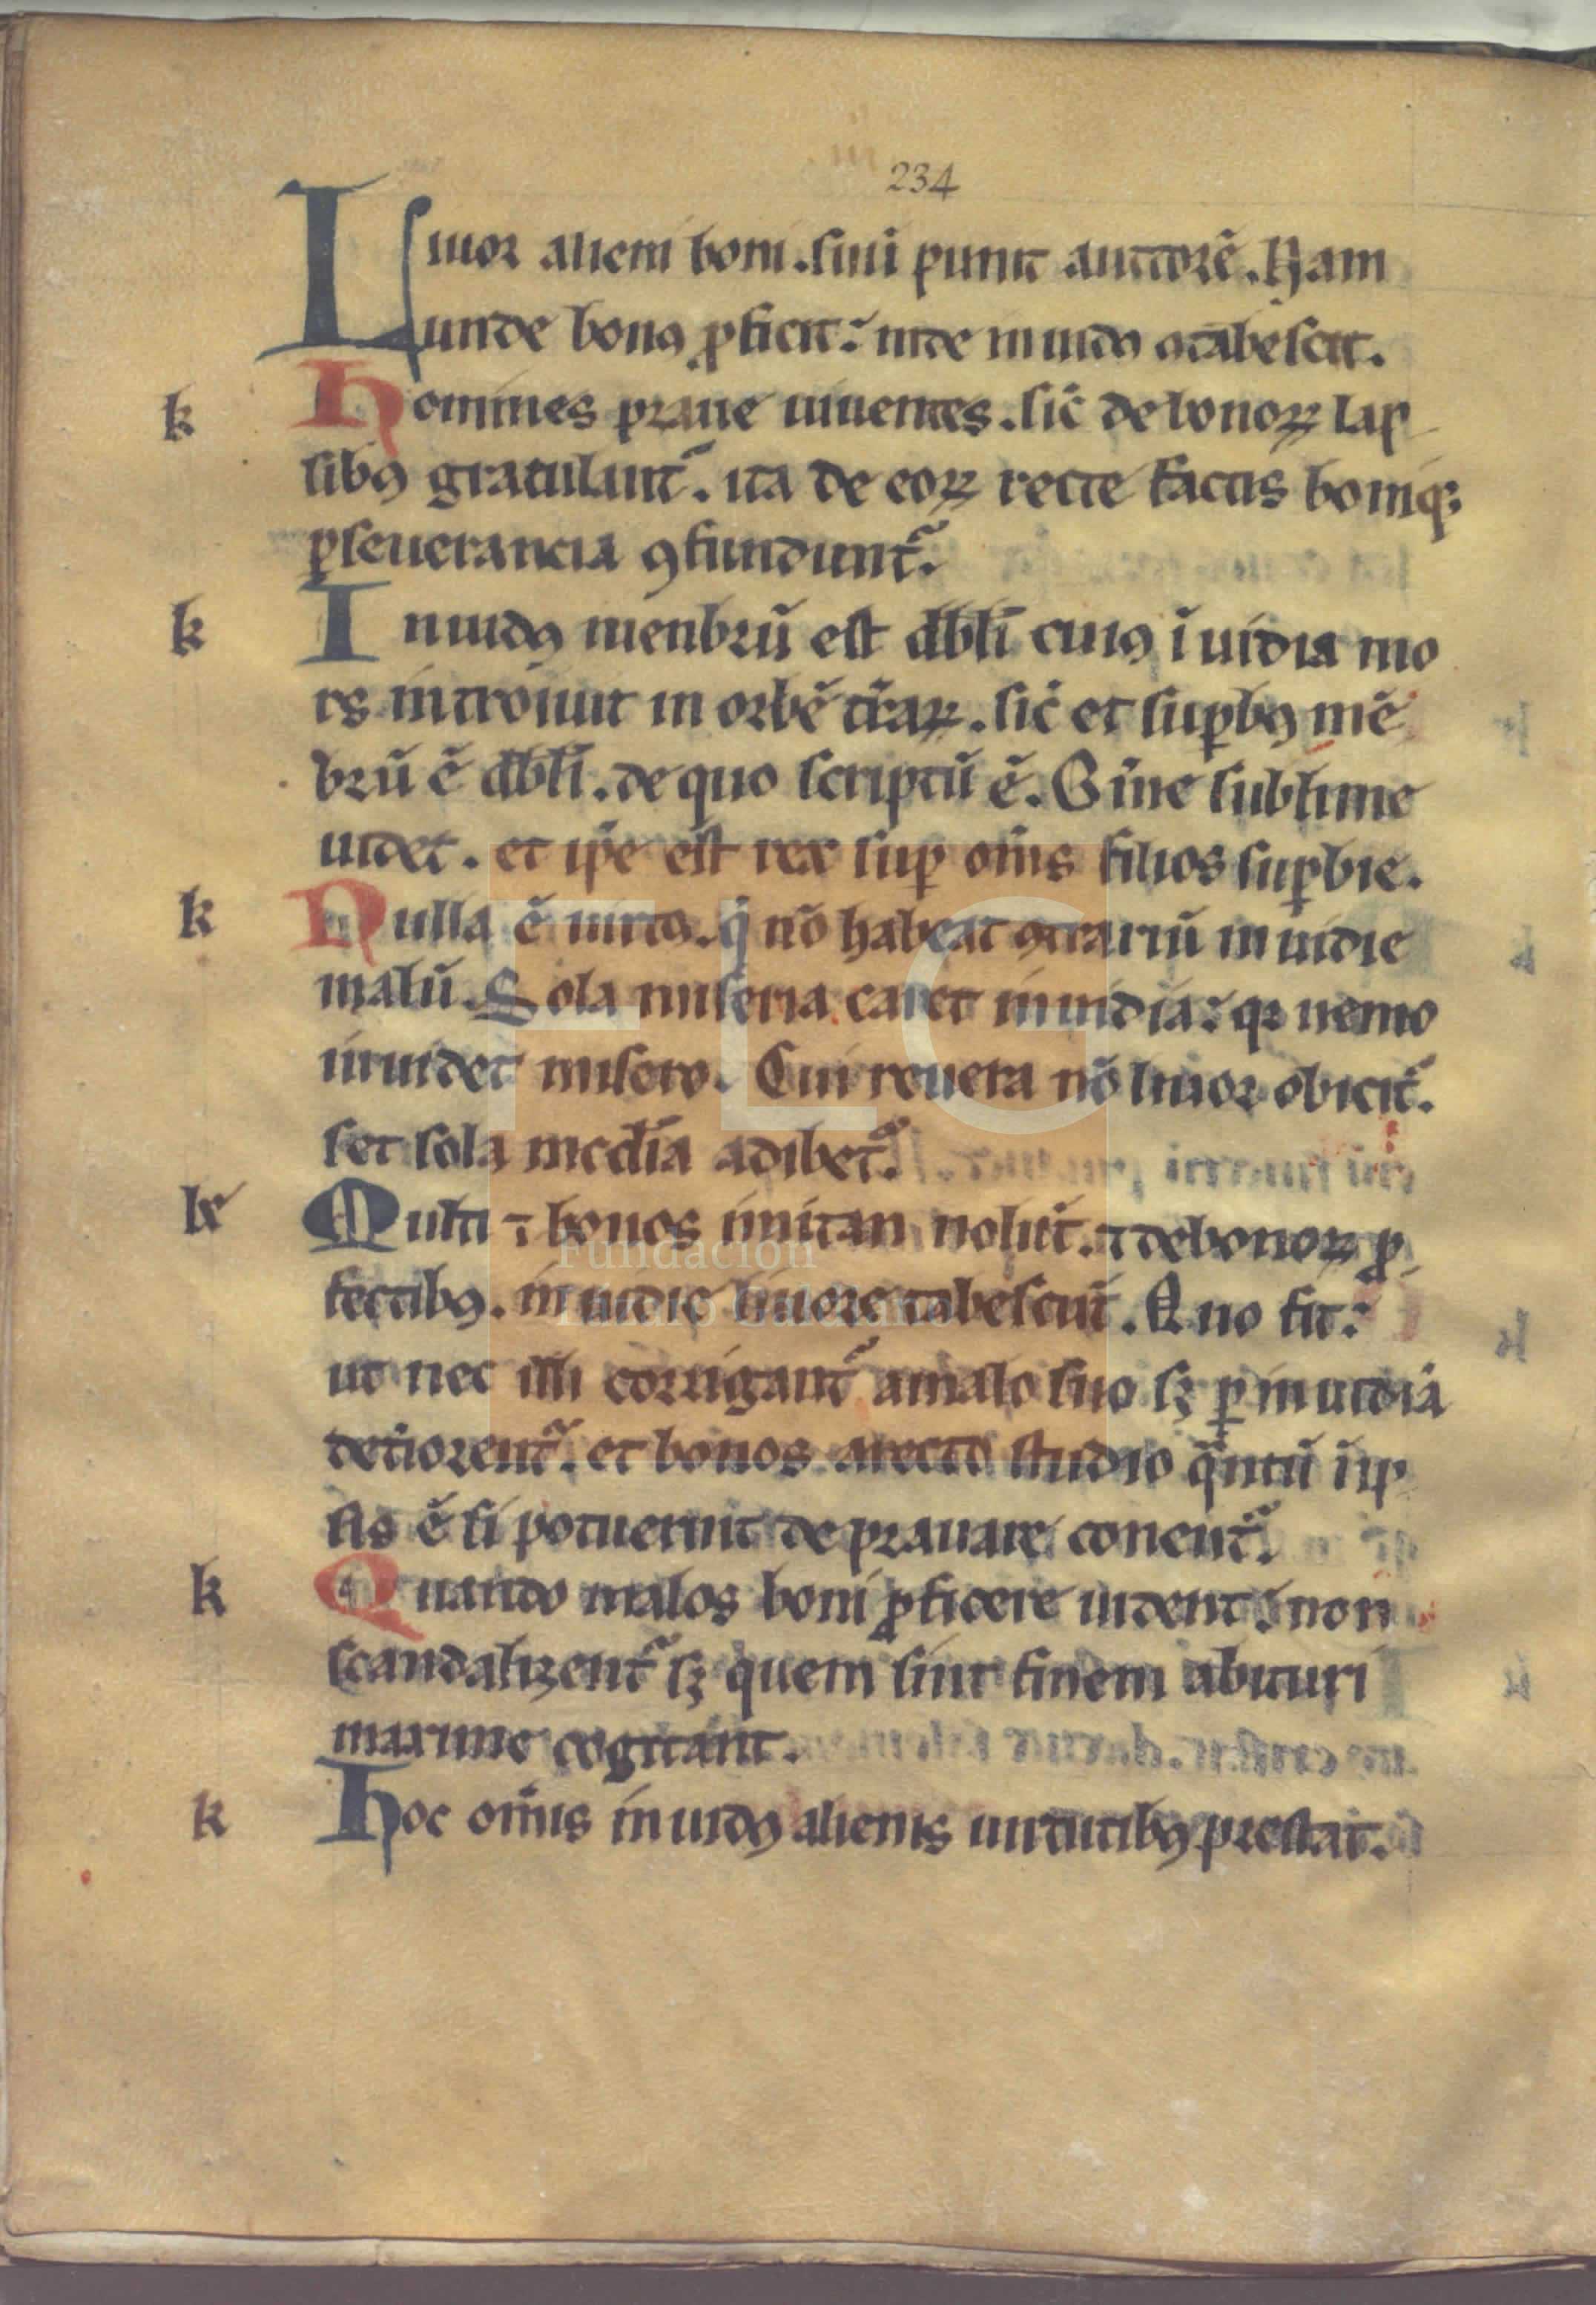 234
Liuor alieni boni. suũ punit auctorẽ. Nam
unde bonꝰ ꝓficit: inde inuidꝰ ꝯtabescit.
k Homines praue uiuentes. sic̃ de bonoꝝ lap
sibꝰ gratulant᷑. ita de eoꝝ recte factis boniqꝫ
ꝑseuerancia ꝯfundunt᷑.
k Inuidꝰ menbrũ est dìbli cuiꝰ ĩuidia mo
rs introiuit in orbẽ t̃raꝝ. sic̃ et suꝑbꝰ mẽ
brũ ẽ dìbli. de quo scriptũ ẽ. Õme sublime
uidet. et ip̃e est rex suꝑ om̃s filios suꝑbie.
k Nulla ẽ uirtꝰ. q̃ nõ habeat ꝯtrariũ inuidie
malũ. Sola miseria caret inuidia: qꝛ nemo
inuidet misero. Cui reuera nõ liuor obicit᷑.
set sola mcd̃ia adibet᷑.
k Multi ⁊ bonos imitari nolũt. ⁊ de bonoꝝ ꝓ
fectibꝰ. inuidie liuore tabescũt. Quo fit:
ut nec illi corrigant᷑ a malo suo sꝫ ꝑ inuidiã
deteriorent᷑. et bonos a recto studio q̃ntũ ĩ ip
sis ẽ si potuerint deprauare conent᷑.
k Quando malos boni ꝓficere uident: non
scandalizent᷑ sꝫ quem sint finem abituri
maxime cogitant.
k Hoc om̃is inuidꝰ alienis uirtutibꝰ prestat.
FLG
Fundación
Lázaro Galdiano